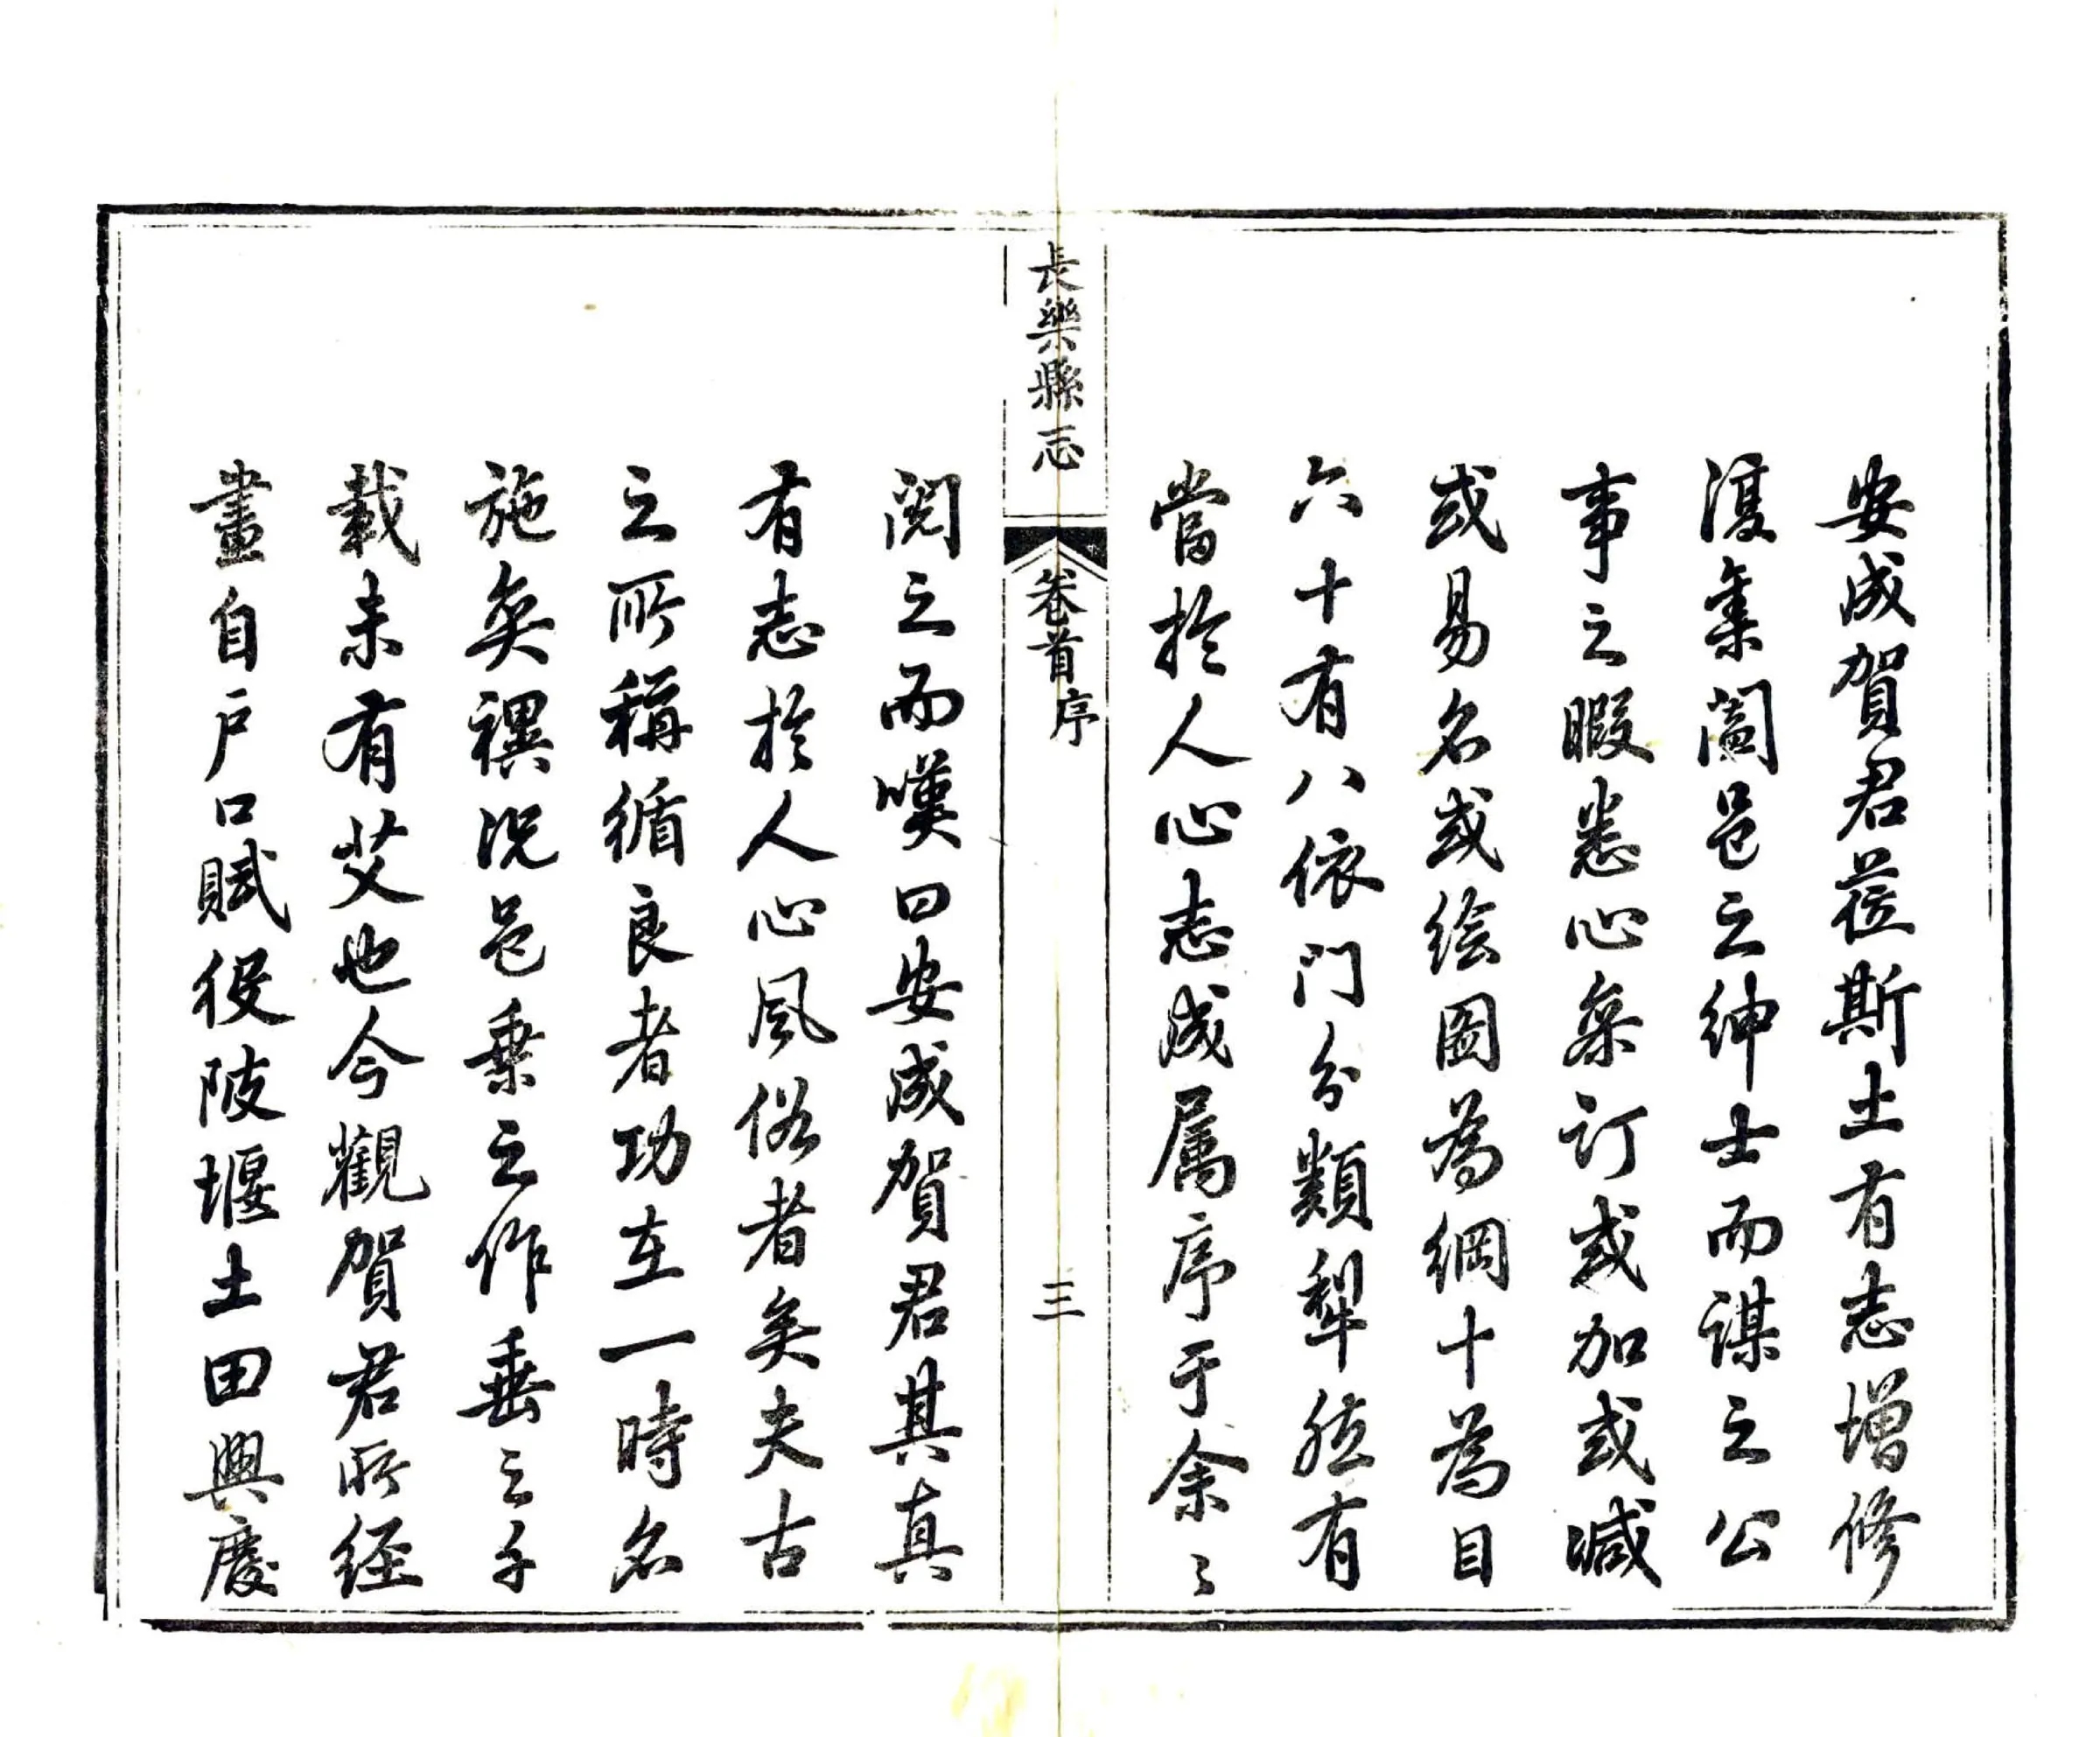 安成賀君蒞斯土有志增修
復集闔邑之紳士而謀之公
事之暇悉心參訂或加或減
或易名或绘圖為綱十為目
六十有八依門分類犁然有
當於人心志成属序于余々
長樂縣志
卷首
序
三
閱之而嘆曰安成賀君其真
有志於人心風俗者矣夫古
之所稱循良者功在一時名
施奕禩況邑乗之作垂之千
載未有艾也今觀賀君所经
畫自戶口賦役陂堰土田興慶